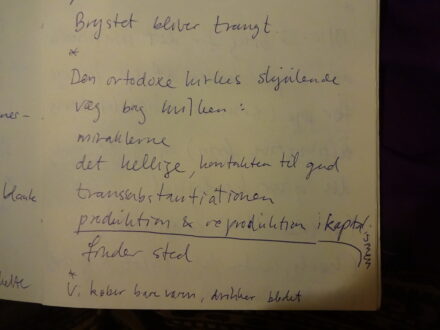 Brystet bliver trangt.
*
Den ortodoxe kirkes skjulende
væg bag hvilken:
miraklerne
det hellige, kontakten til gud
transsubstantiationen
produktion & reproduktion i kapital.
finder sted
*
V. køber bare varen, drikker blodet